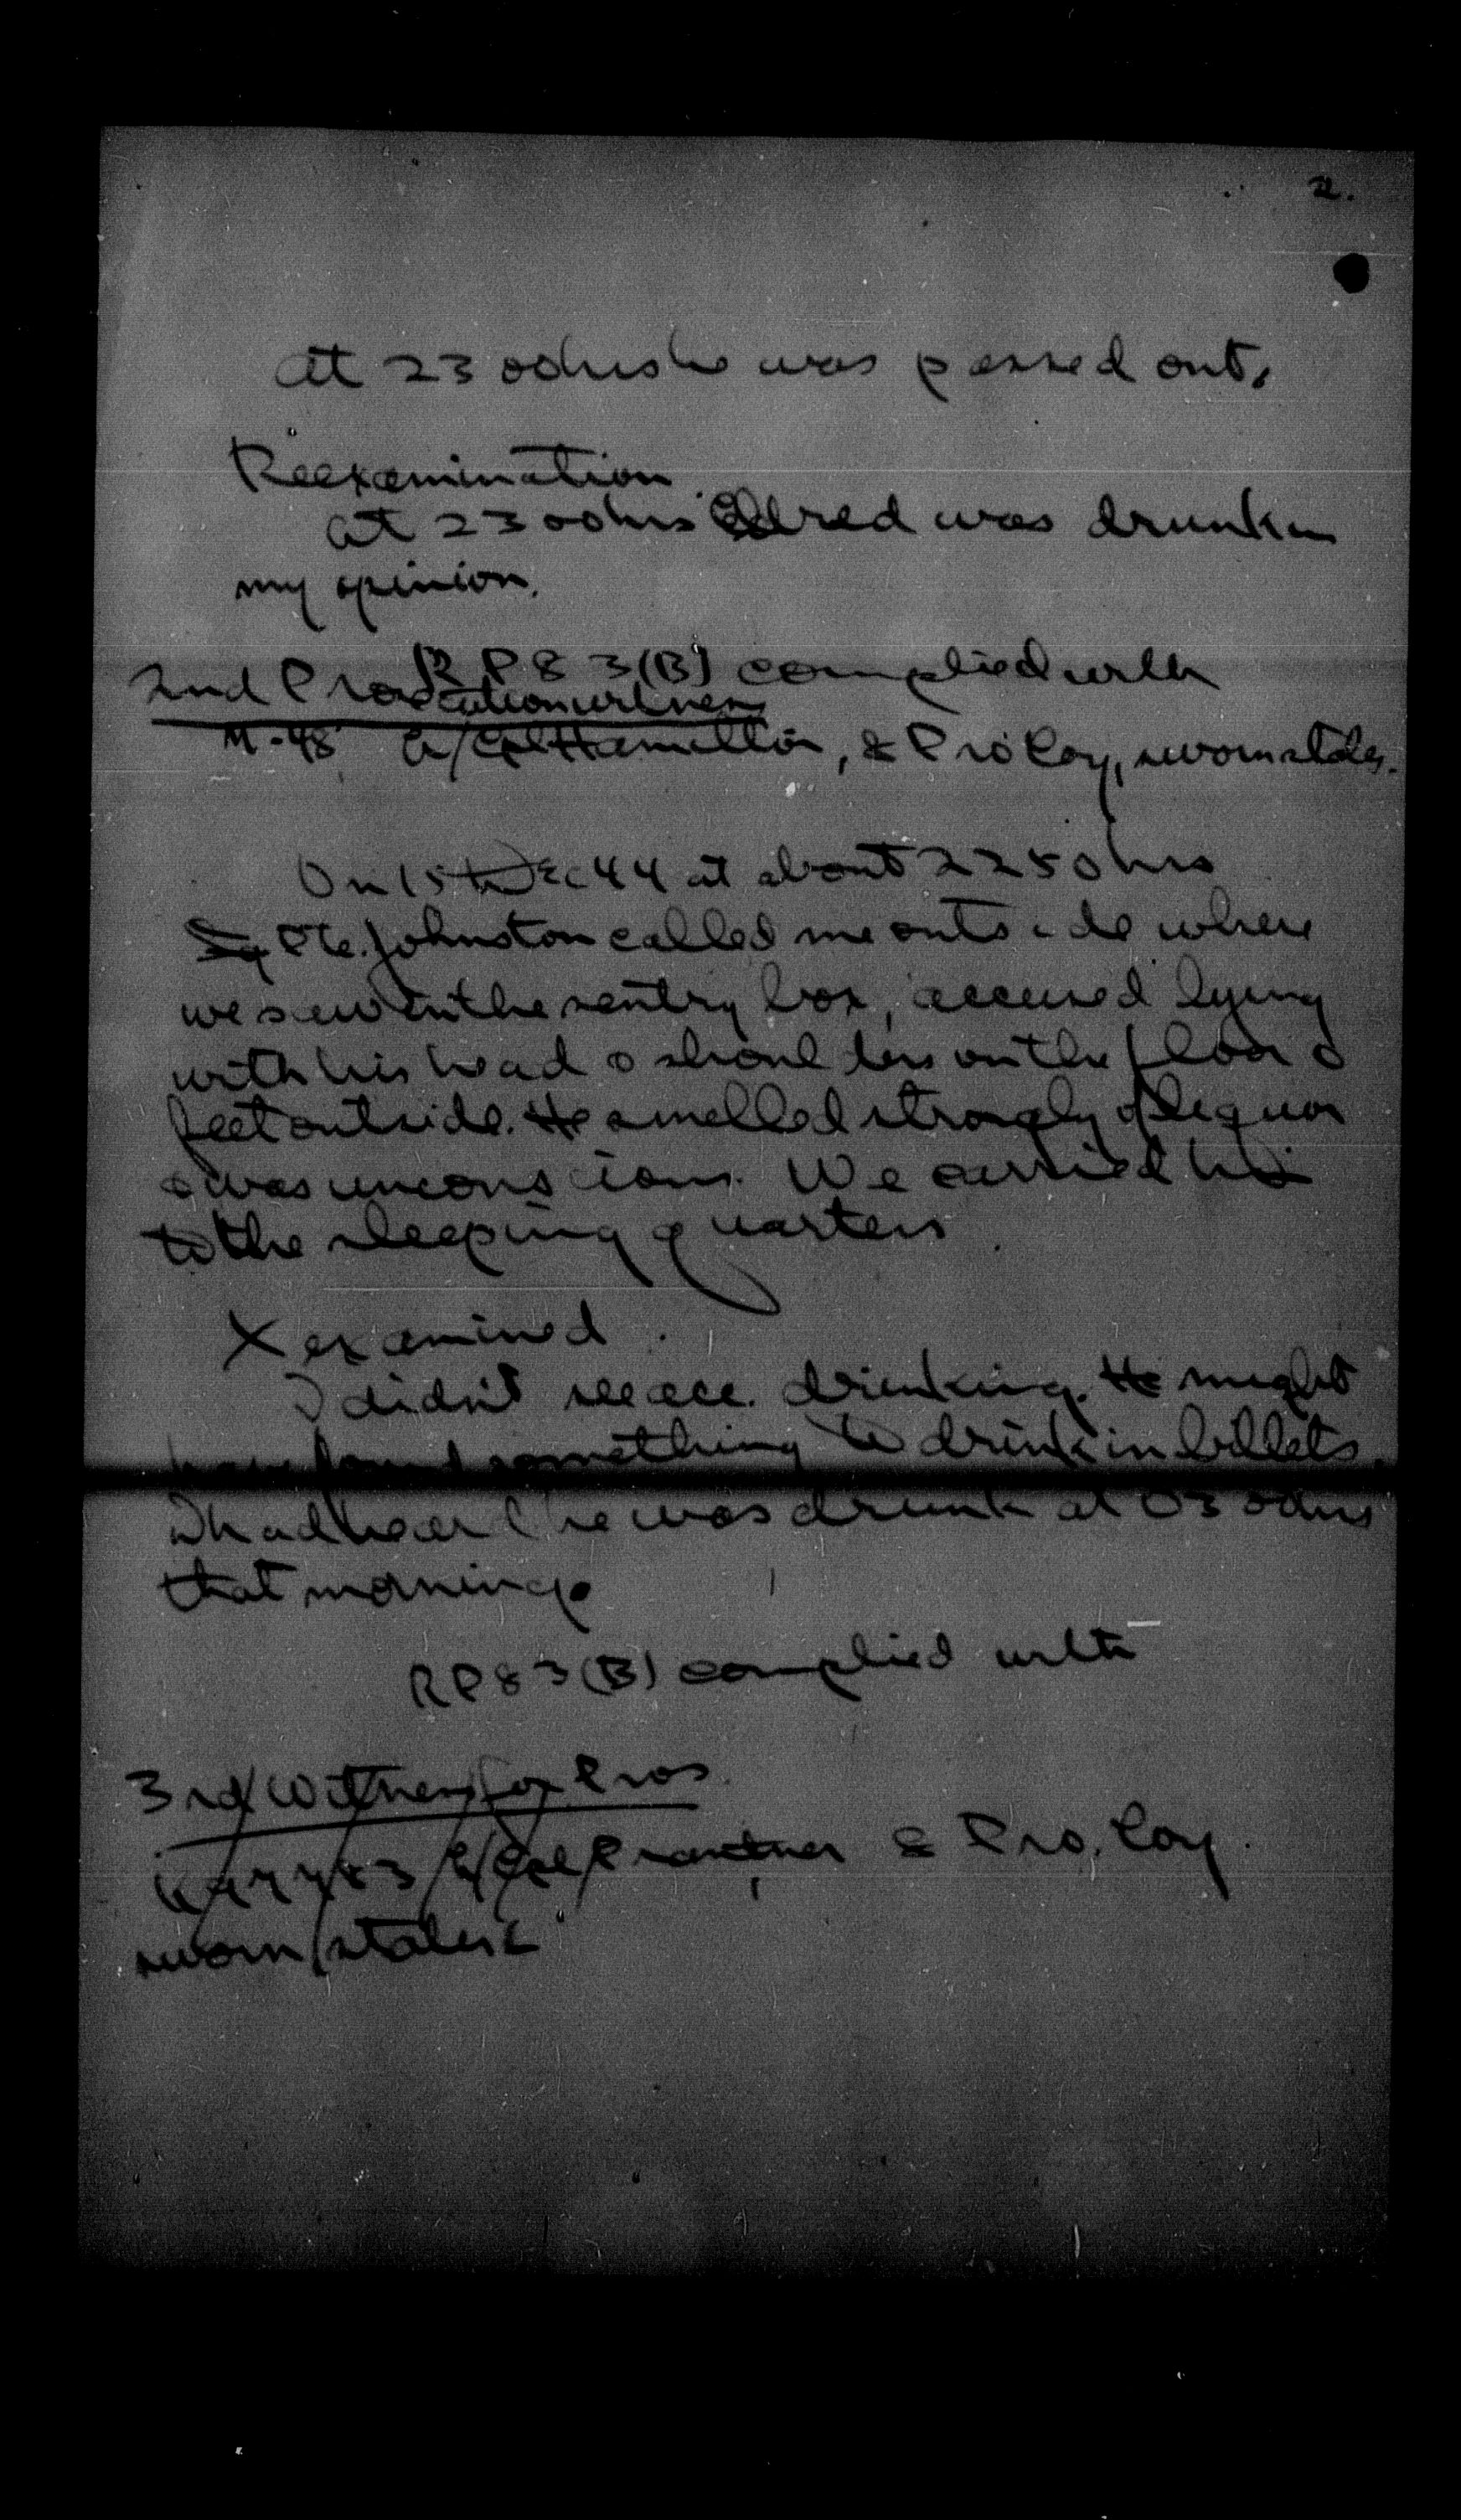 2.
at 2300hrs he was passed out.
Reexamination
at 2300hrs Eldred was drunk in
my opinion.
RP83(B) complied with
2nd Prosecution witness
M-48 A/Cpl Hamilton, 2 Pro Coy, sworn states.
On 15th Dec 44 at about 2250hrs
Pte. Johnston called me outside where
we saw in the sentry box, accused lying
with his head & shoulders on the floor &
feet outside. He smelled strongly of liquor
& was unconscious. We carried him
to the sleeping quarters.
X examined.
I didn't see acc. drinking. He might
have found something to drink in billets.
I had heard he was drunk at 0300hrs
that morning.
RP83(B) complied with
3rd Witness for Pros.
A/Cpl 2 Pro. Coy.
sworn states: